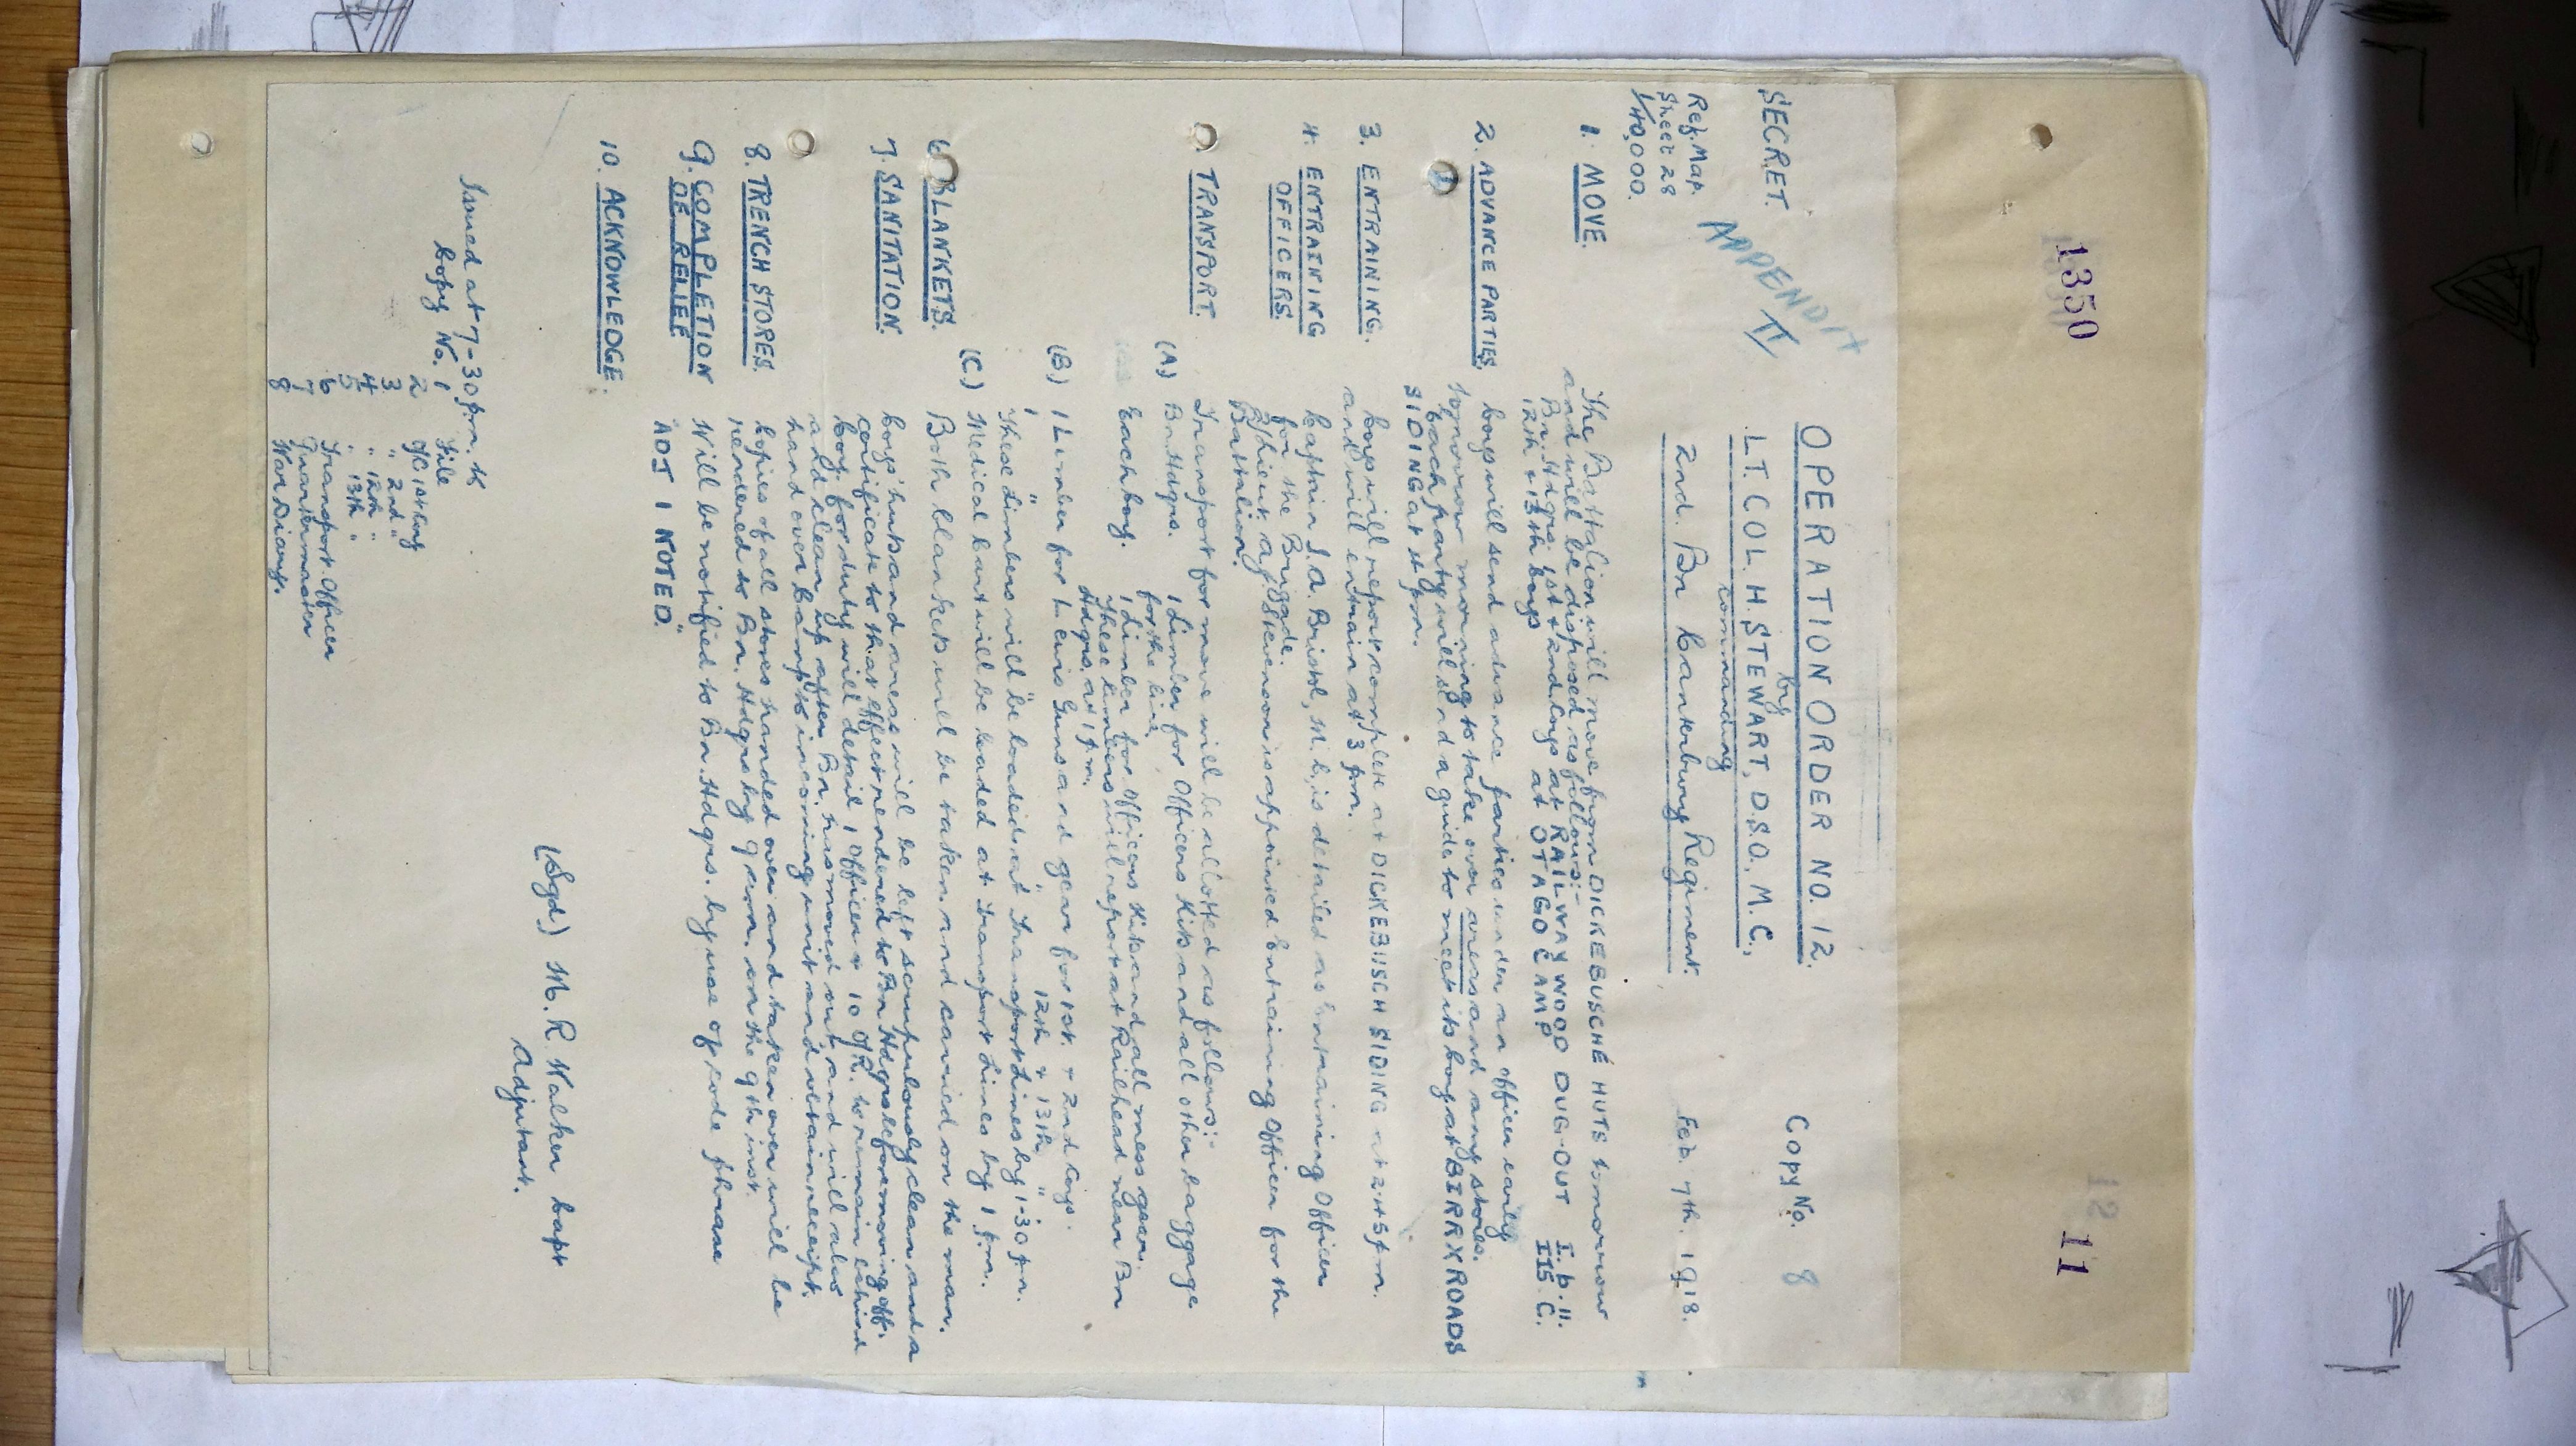 1350
12 11
SECRET.
OPERATION ORDER NO. 12.
Copy No. 8
by
APPENDIX II
LT. COL. H. STEWART, D.S.O., M.C.,
commanding
Ref. Map.
Sheet 28
1/40,000.
2nd. Bn Canterbury Regiment.
Feb. 7th. 1918.
1. MOVE.
The Battalion will move from DICKEBUSCHE HUTS tomorrow
and will be disposed as follows:-
Bn. Hdqrs. 1st & 2nd Coys at RAILWAY WOOD DUG-OUT I.b.11.
12th & 13th Coys at OTAGO CAMP I15 C.
2. ADVANCE PARTIES
Coys will send advance parties under an officer early
tomorrow morning to take over areas and any stores.
Each party will send a guide to meet its Coy at BIRR X ROADS
SIDING at 4 pm.
3. ENTRAINING.
Coys will report complete at DICKEBUSCH SIDING at 2.45 pm.
and will entrain at 3 pm.
4. ENTRAINING
OFFICERS.
Captain S.A. Bristol, M.C. is detailed as Entraining Officer
for the Brigade.
2/Lieut. Stevenson is appointed Entraining Officer for the
Battalion.
TRANSPORT.
Transport for move will be allotted as follows:-
(A) Bn. Hdqrs. 1 Limber for Officers Kits and all other baggage
for the line.
Each Coy. 1 Limber for Officers Kits and all mess gear.
These limbers will report at Railhead near Bn
Hdqrs. at 1 pm.
(B) 1 Limber for Lewis Guns and gear for 1st. & 2nd Coys.
1 " " " " " " 12th & 13th "
These Limbers will be loaded at Transport Lines by 1-30 pm.
(C) Medical cart will be loaded at Transport Lines by 1 pm.
6. BLANKETS.
Both blankets will be taken and carried on the man.
7. SANITATION.
Coys' huts and areas will be left scrupulously clean and a
certificate to that effect rendered to Bn Hdqrs before moving off.
Coy. for duty will detail 1 Officer & 10 O/R. to remain behind
and clean up after Bn. has moved out and will also
hand over Camp to incoming unit and obtain receipt.
8. TRENCH STORES.
Copies of all stores handed over and taken over will be
rendered to Bn. Hdqrs by 9 pm. on the 9th inst.
9. COMPLETION
OF RELIEF
Will be notified to Bn. Hdqrs. by use of code phrase
"ADJ 1 NOTED."
10. ACKNOWLEDGE.
(Sgd) M. R. Walker Capt
Adjutant.
Issued at 7-30 pm. to
Copy No. 1 File
2 O/C 1st Coy
3 " 2nd "
4 " 12th "
5 " 13th "
6 Transport Officer
7 Quartermaster
8 War Diary.